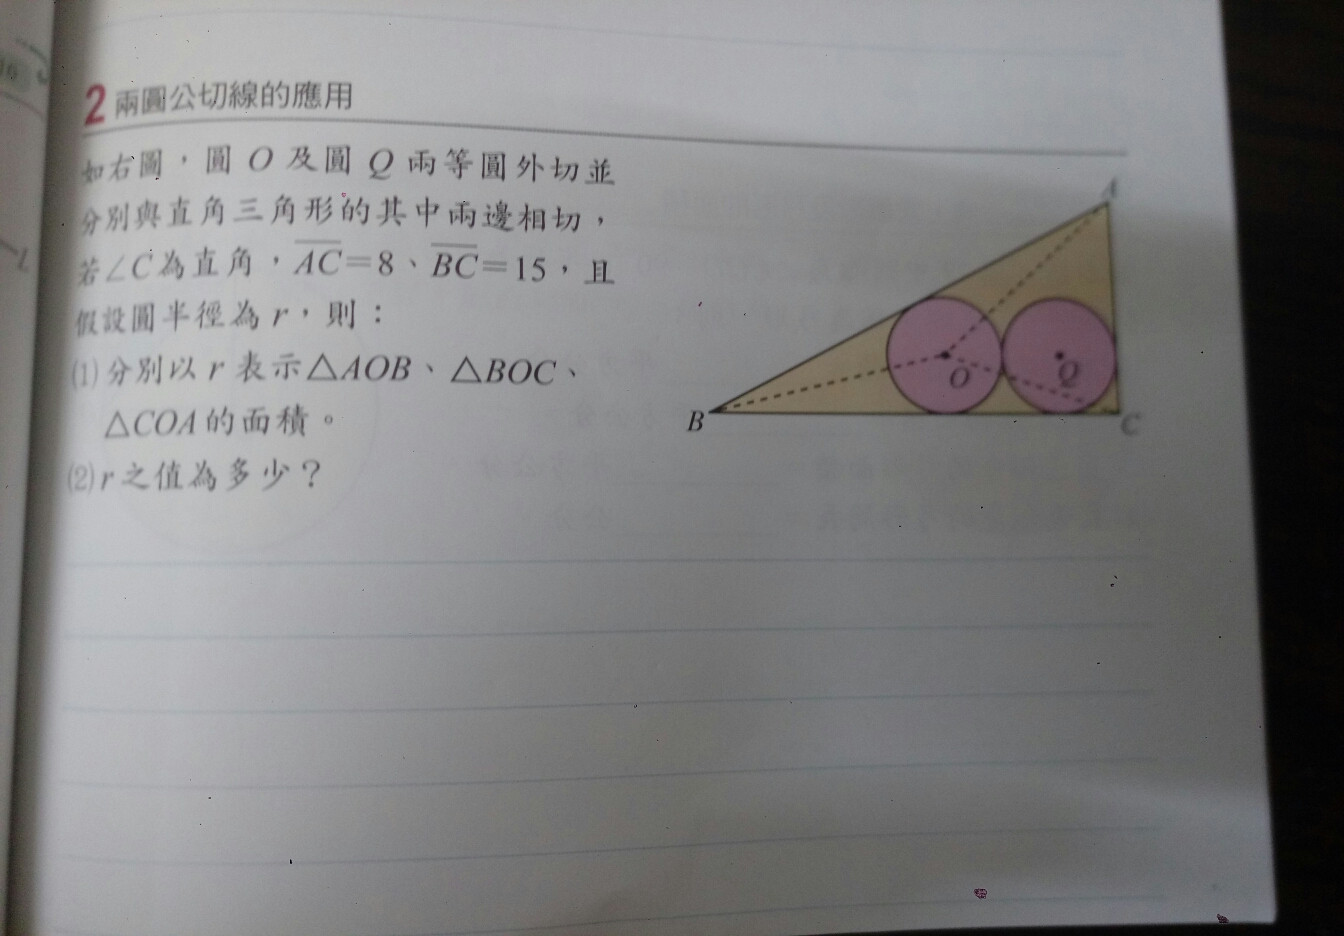 2 兩圓公切線的應用
如右圖，圓 O 及圓 Q 兩等圓外切並
分別與直角三角形的其中兩邊相切，
若∠C為直角，AC=8、BC=15，且
假設圓半徑為 r，則：
(1)分別以 r 表示△AOB、△BOC、
△COA的面積。
(2)r之值為多少？
A
O
Q
B
C